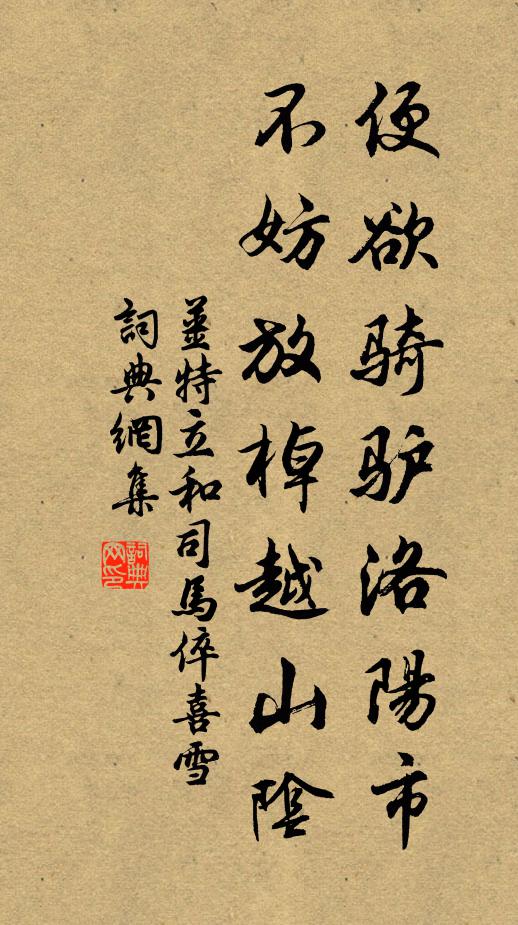 便欲骑驴洛陽市
不妨放棹越山陰
薑特立和司馬倅喜雪
詞典網集
詞典網印